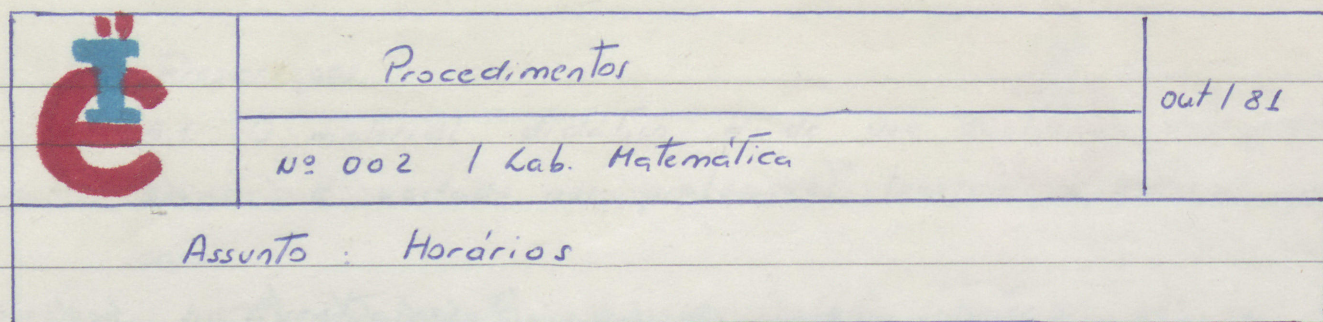 Procedimentos
out / 81
Nº 002 / Lab. Matemática
Assunto : Horários